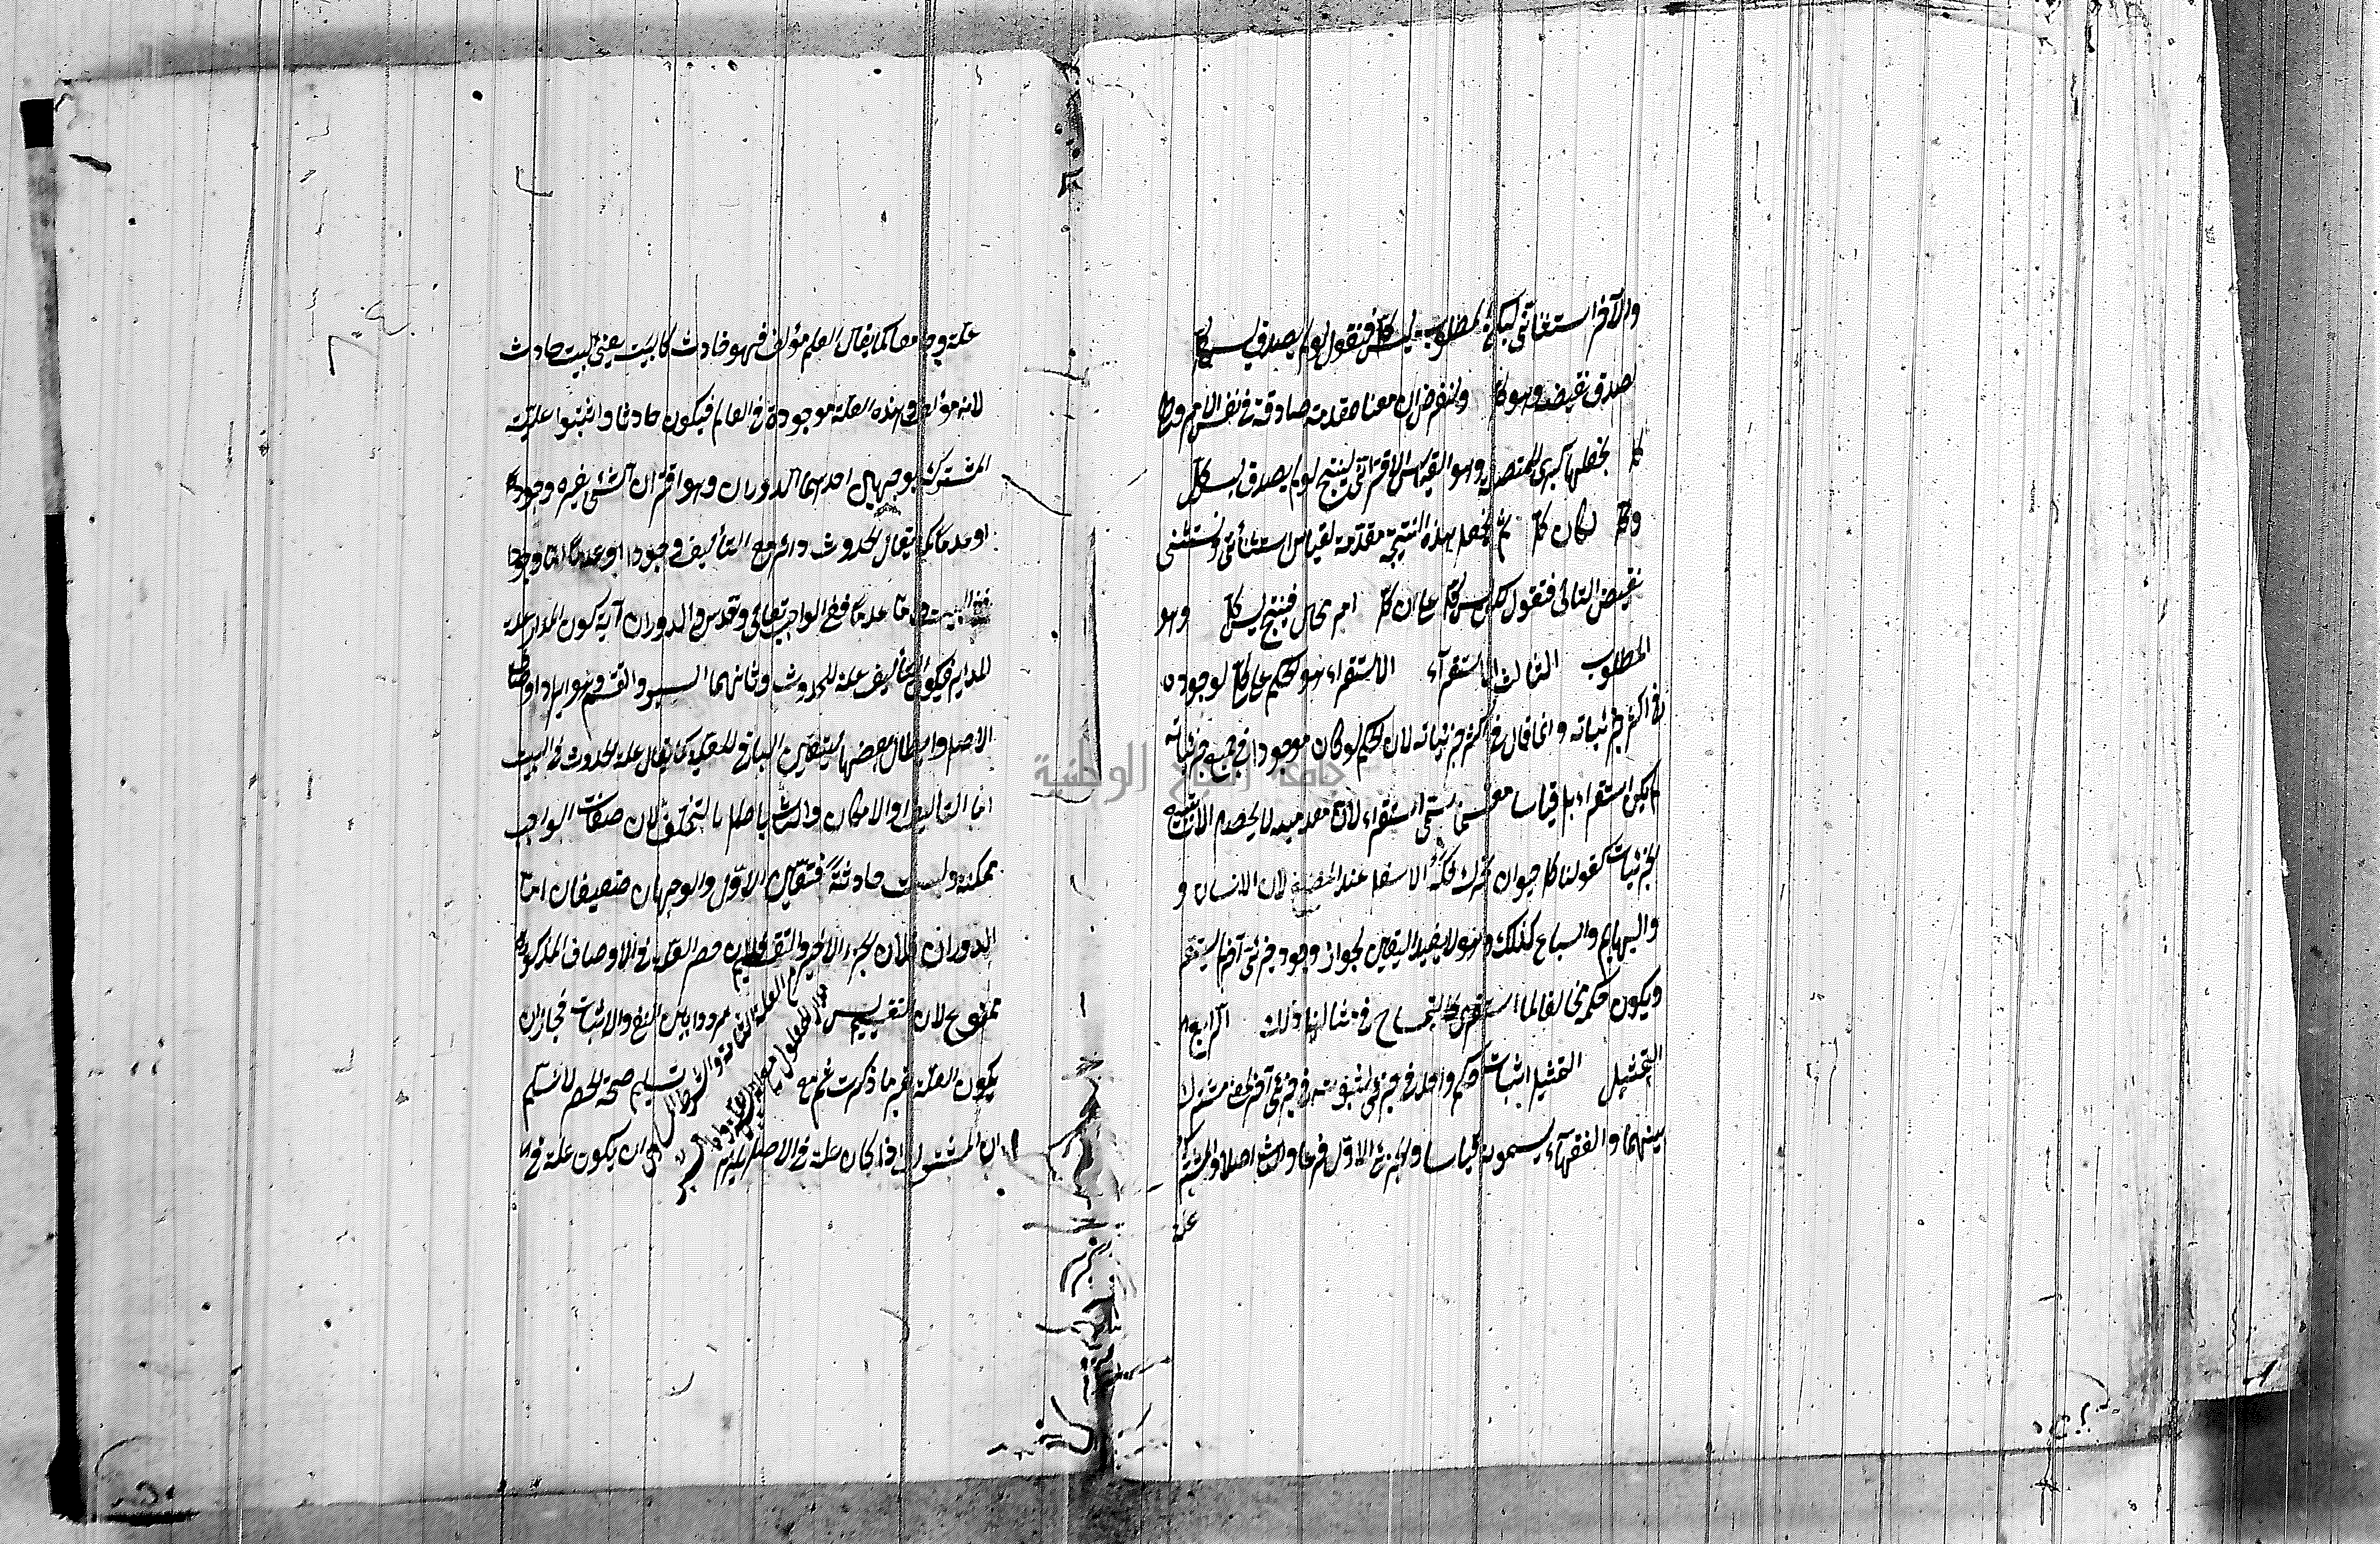 والآخر استثنائي ليكن المطلوب ليس كل فنقول لو لم يصدق ليس كل
لصدق نقيضه وهو كل ولنفرض ان معنا مقدمة صادقة في نفس الامر وهي كل
نجعلها كبرى للمتصلة وهو القياس الاقتراني لينتج لو لم يصدق ليس كل
لكان كل ثم نجعل هذه النتيجة مقدمة لقياس استثنائي ونستثنى
نقيض التالي فنقول لكن ليس كل على ان كل امر محال فينتج ليس كل وهو
المطلوب الثالث الاستقراء الاستقراء هو الحكم على كل لوجوده
في اكثر جزئياته وانما قال في اكثر جزئياته لان الحكم لو كان موجودا في جميع جزئياته
لم يكن استقراء بل قياسا مقسما يسمى استقراء لان مقدميه لا يحصل الا بتتبع
الجزئيات كقولنا كل حيوان يحرك فكه الاسفل عند المضغ لان الانسان و
والبهايم والسباع كذلك وهو لا يفيد اليقين لجواز وجود جزئي آخر لم يستقر
ويكون حكمه مخالفا لما استقرى كالتمساح في مثالنا ذلك الرابع
التمثيل التمثيل اثبات حكم واحد في جزئي لثبوته في جزئي آخر لمعنى مشترك
بينهما والفقهاء يسمونه قياسا والجزئي الاول فرعا والثاني اصلا والمشترك
علة
علة وجامعا كما يقال العالم مؤلف فهو حادث كالبيت يعني البيت حادث
لانه مؤلف وهذه العلة موجودة في العالم فيكون حادثا واثبتوا علية
المشترك بوجهين احدهما الدوران وهو اقتران الشئ بغيره وجودا
او عدما كما يقال الحدوث دائر مع التأليف وجودا او عدما اما وجودا
ففي البيت واما عدما ففي الواجب تعالى وتقدس والدوران آية كون المدار علة
للداير فيكون التأليف علة للحدوث وثانيهما السبر والتقسيم وهو ايراد اوصاف
الاصل وابطال بعضها ليتعين الباقي للعلية كما يقال علة الحدوث في البيت
اما التأليف او الامكان والثاني باطل بالتخلف لان صفات الواجب
ممكنة وليست حادثة فتعين الاول والوجهان ضعيفان اما
الدوران فلان الجزء الاخير والتقسيم فلان حصر العلة في الاوصاف المذكورة
ممنوع لان التقسيم ليس مرددا بين النفي والاثبات فجاز ان
يكون العلة غير ما ذكرت ثم مع تسليم صحة الحصر لا نسلم
ان المشترك اذا كان علة في الاصل يلزم ان يكون علة في
جامعة النجاح الوطنية